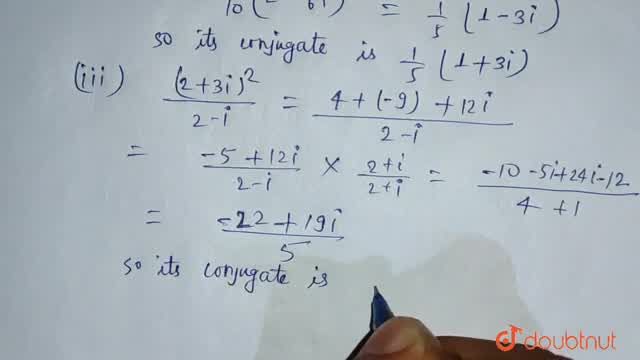 10(   6i) = 1/5 (1-3i)
so its conjugate is 1/5 (1+3i)
(iii) (2+3i)²/2-i = 4+(-9)+12i/2-i
= -5+12i/2-i × 2+i/2+i = -10-5i+24i-12/4+1
= -22+19i/5
so its conjugate is
doubtnut